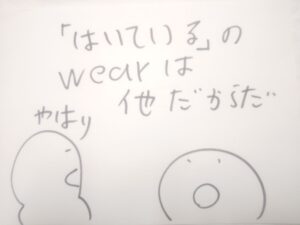 「はいている」の
wearは
他だからだ
やはり